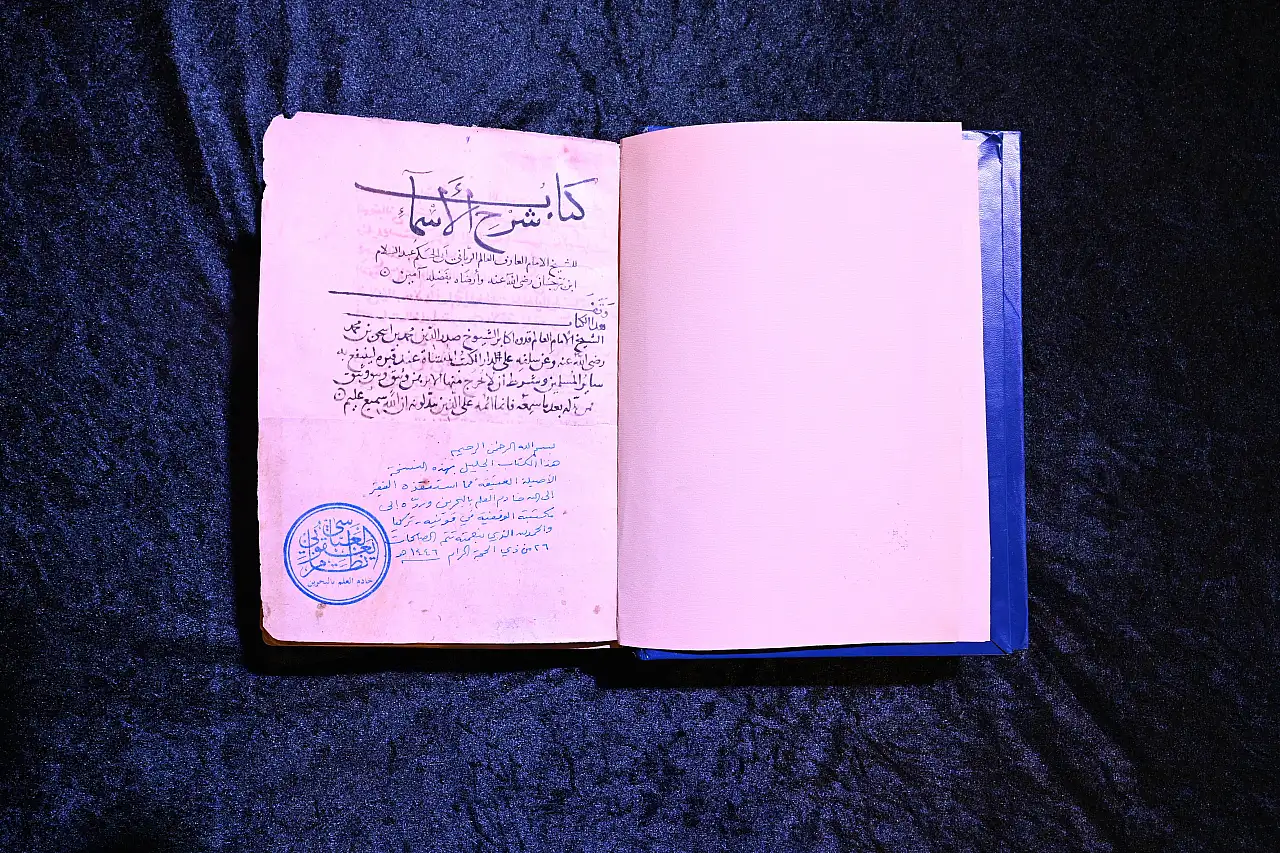 كتاب
شرح الأسمآء
للشيخ الامام العارف العالم الرباني ابى الحكم عبد السلام
ابن برجان رضى الله عنه وأرضاه بفضله آمين
وقف
هذا الكتاب
الشيخ الامام العالم قدوة اكابر الشيوخ صدر الدين محمد بن اسحق بن محمد
رضى الله عنه وعن سلفه على دار الكتب المنشاة عند قبره لينتفع به
ساير المسلمين وشرط أن لا يخرج منها الا برهن وثيق
بدله بعدما سمعه فانما اثمه على الذين يبدلونه ان الله سميع عليم
بسم الله الرحمن الرحيم
هذا الكتاب الجليل بهذه النسخة
الأصيلة العتيقة مما استنقذه الفقير
إلى الله خادم العلم بالبحرين وردّه إلى
مكتبته الوقفية في قونية - تركيا
والحمد لله الذي بنعمته تتم الصالحات
٢٦ من ذي الحجة الحرام ١٤٤٦ هـ
العباسي
يعقوبي
نظام
خادم العلم بالبحرين